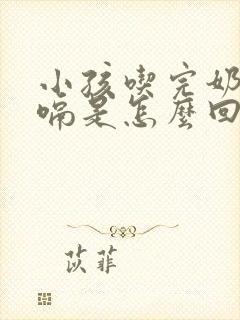 小孩喫完奶
嗝是怎麼回
苡菲